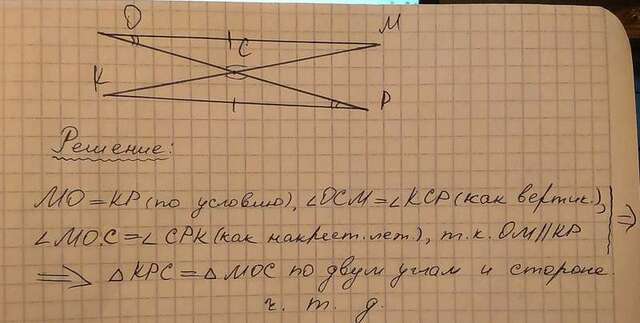 O
M
C
K
P
Решение:
MO = KP (по условию), ∠OCM = ∠KCP (как вертик.),
∠MOC = ∠CPK (как накрест. леж.), т.к. OM || KP ⇒
⇒ △KPC = △MOC по двум углам и стороне.
ч. т. д.